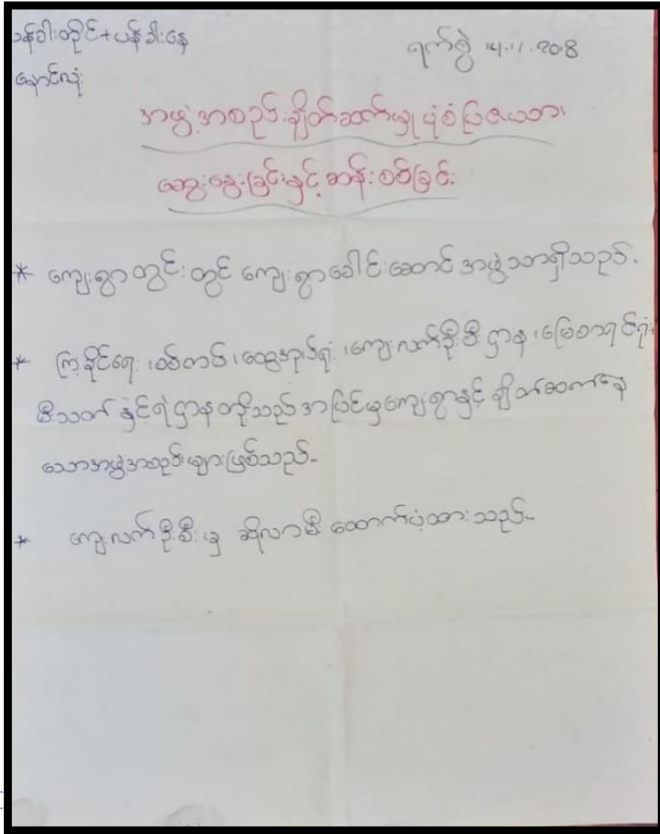 ပန်ခါးတိုင်+ပန်ခါးနေ
နောင်လုံး
ရက်စွဲ ၊၄.၊၊.၂၀၁၈
အဖွဲ့အစည်းချိတ်ဆက်မှုပုံစံပြဇယား
ဆွေးနွေးခြင်းနှင့်ဆန်းစစ်ခြင်း
* ကျေးရွာတွင်းတွင် ကျေးရွာခေါင်းဆောင် အဖွဲ့သာရှိသည်.
* ကြံ့ခိုင်ရေး ၊စစ်တပ် ၊ထွေအုပ်ရုံး ၊ကျေးလက်ဦးစီးဌာန ၊မြေစာရင်းရုံး၊
မီးသတ် နှင့်ရဲဌာနတို့သည် အပြင်မှကျေးရွာနှင့် ချိတ်ဆက်နေ
သောအဖွဲ့အစည်းများဖြစ်သည်-
* ကျေးလက်ဦးစီးမှ ဆိုလာမီး ထောက်ပံ့ထားသည်-